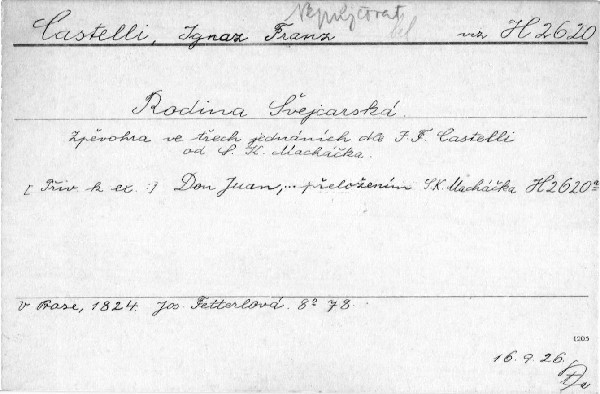 Nepůjčovat
Castelli, Ignaz Franz viz H 2620
Rodina Švejcarská.
Zpěvohra ve třech jednáních dle I. F. Castelli
od S. K. Macháčka.
[Přiv. k ex.:] Don Juan,... přeložením S.K. Macháčka H 2620a
V Praze, 1824. Jos. Fetterlová. 8° 78.
1205
16. 9. 26.